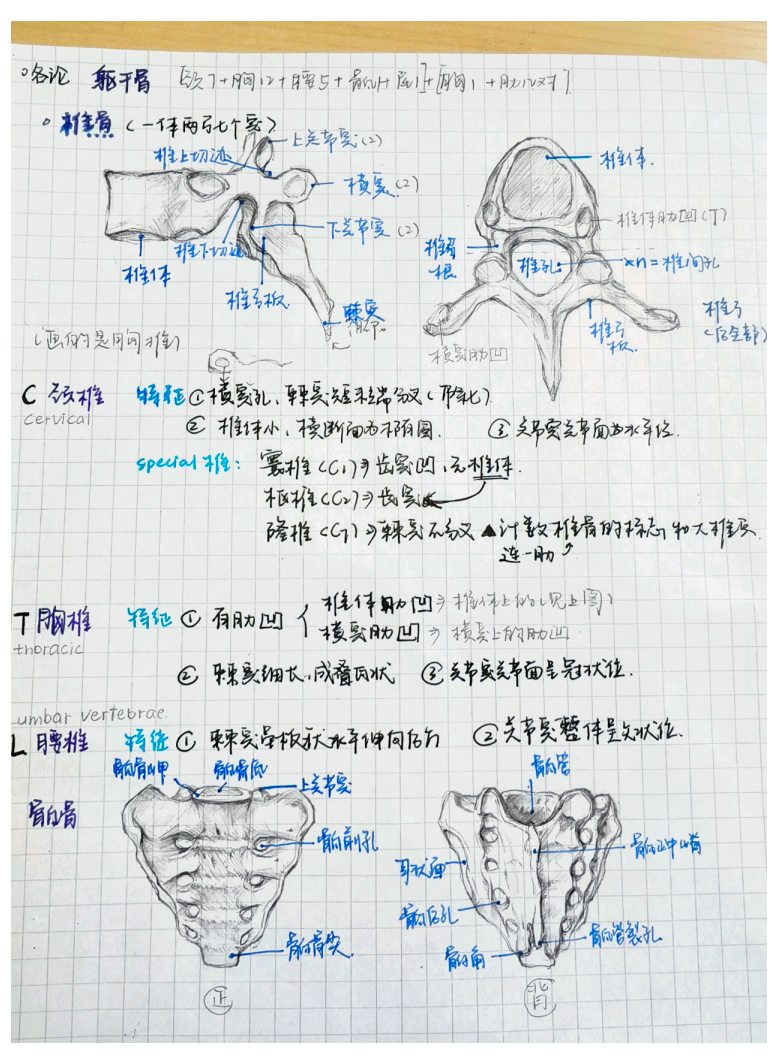 各论 躯干骨 [颈7+胸12+腰5+骶1+尾1]+[胸1+肋12对]
椎骨(一体两弓七个突)
上关节突(2)
椎上切迹
横突(2)
下关节突(2)
椎下切迹
椎体
椎弓板
棘突
(画的是胸椎)
椎体
椎体肋凹(T)
椎弓根
椎孔
×n=椎间孔
椎弓板
椎弓(后全部)
横突肋凹
C 颈椎 特征 ①横突孔,棘突短末端分叉(除七)
cervical
②椎体小,横断面为椭圆. ③关节突关节面为水平位.
special椎: 寰椎(C1)→齿突凹,无椎体.
枢椎(C2)→齿突
隆椎(C7)→棘突不分叉 ▲计数椎骨的标志,
连一肋
T 胸椎 特征 ①有肋凹 { 椎体肋凹→椎体上的(见上图)
thoracic
横突肋凹→横突上的肋凹
②棘突细长,成叠瓦状 ③关节突关节面呈冠状位.
umbar vertebrae
L 腰椎 特征 ①棘突呈板状水平伸向后方 ②关节突整体呈矢状位.
骶骨
骶骨岬
骶骨底
上关节突
骶前孔
骶骨尖
正
骶管
耳状面
骶正中嵴
骶后孔
骶角
骶管裂孔
背